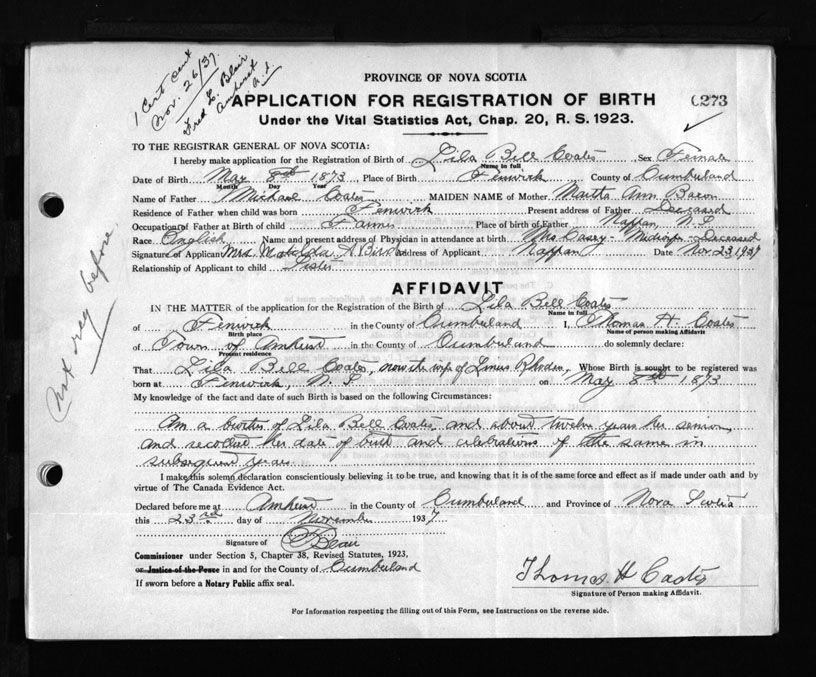 1 Cert sent
Nov. 26/37.
Fred L. Blair
Amherst
N.S.
PROVINCE OF NOVA SCOTIA
APPLICATION FOR REGISTRATION OF BIRTH
6273
Under the Vital Statistics Act, Chap. 20, R. S. 1923.
TO THE REGISTRAR GENERAL OF NOVA SCOTIA:
I hereby make application for the Registration of Birth of Lila Bell Coates, Sex Female
Name in full
Date of Birth May 8th 1873 Place of Birth Fenwick County of Cumberland
Month Day Year
Name of Father Michael Coates MAIDEN NAME of Mother Martha Ann Bacon
Residence of Father when child was born Fenwick Present address of Father Deceased
Occupation of Father at Birth of child Farmer Place of birth of Father Nappan N.S.
Race English Name and present address of Physician in attendance at birth Mrs Casey - Midwife - Deceased
Signature of Applicant Mrs. Matilda A Bird Address of Applicant Nappan Date Nov 23, 1937
Relationship of Applicant to child Sister
AFFIDAVIT
IN THE MATTER of the application for the Registration of the Birth of Lila Bell Coates
Name in full
of Fenwick in the County of Cumberland I, Thomas H. Coates
Birth place Name of person making Affidavit
of Town of Amherst in the County of Cumberland do solemnly declare:
Present residence
That Lila Bell Coates, now the wife of Linus Rhodes, Whose Birth is sought to be registered was
born at Fenwick, N.S. on May 8th 1873
My knowledge of the fact and date of such Birth is based on the following Circumstances:
Am a brother of Lila Bell Coates and about twelve years her senior,
and recollect her date of birth and celebrations of the same in
subsequent years
I make this solemn declaration conscientiously believing it to be true, and knowing that it is of the same force and effect as if made under oath and by
virtue of The Canada Evidence Act.
Declared before me at Amherst in the County of Cumberland and Province of Nova Scotia
this 23rd day of November 1937
Signature of
Commissioner under Section 5, Chapter 38, Revised Statutes, 1923,
or Justice of the Peace in and for the County of Cumberland
If sworn before a Notary Public affix seal.
Thomas H Coates
Signature of Person making Affidavit.
For Information respecting the filling out of this Form, see Instructions on the reverse side.
Not reg before.